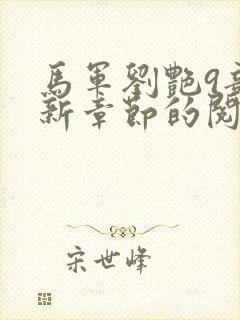 馬軍劉艷9
新章節的閱
宋世峰